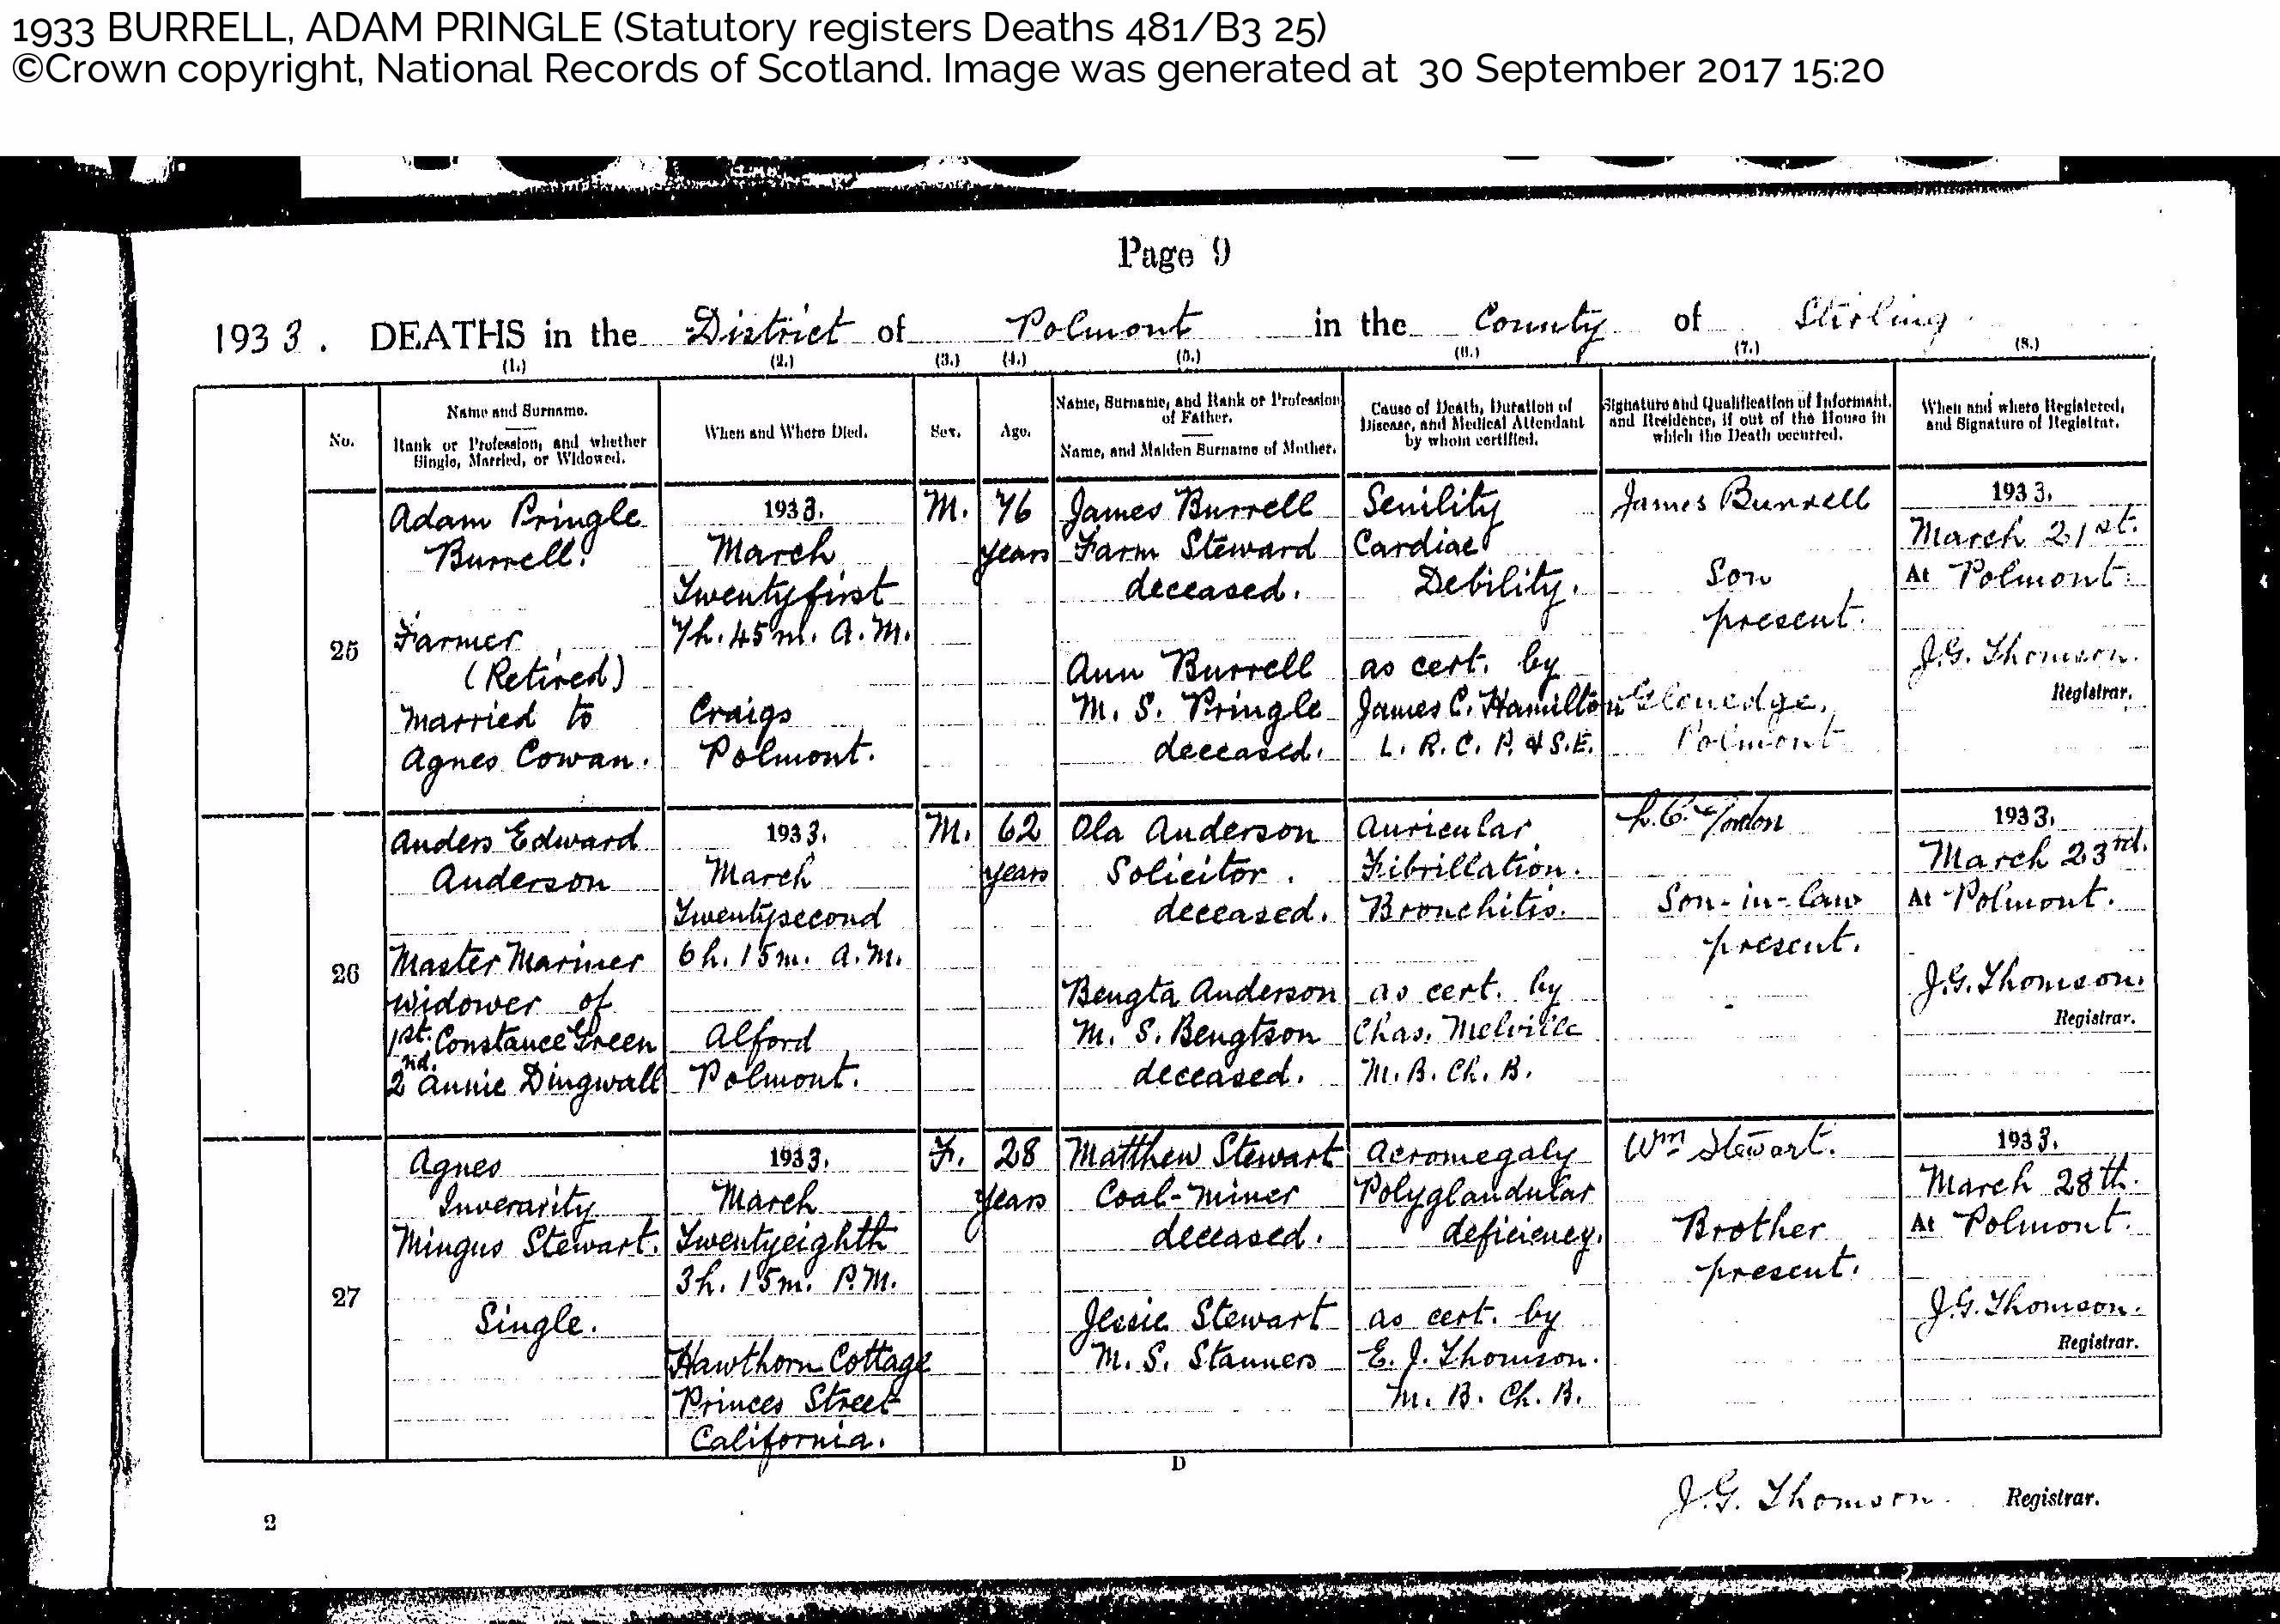 1933 BURRELL, ADAM PRINGLE (Statutory registers Deaths 481/B3 25)
©Crown copyright, National Records of Scotland. Image was generated at 30 September 2017 15:20
Page 9
1933. DEATHS in the District of Polmont in the County of Stirling
(1.) (2.) (3.) (4.) (5.) (6.) (7.) (8.)
No.
Name and Surname.
Rank or Profession, and whether
Single, Married, or Widowed.
When and Where Died.
Sex.
Age.
Name, Surname, and Rank or Profession
of Father.
Name, and Maiden Surname of Mother.
Cause of Death, Duration of
Disease, and Medical Attendant
by whom certified.
Signature and Qualification of Informant,
and Residence, if out of the House in
which the Death occurred.
When and where Registered,
and Signature of Registrar.
25
Adam Pringle
Burrell.
Farmer
(Retired)
Married to
Agnes Cowan.
1933.
March
Twentyfirst
7h. 45m. A.M.
Craigs
Polmont.
M.
76
years
James Burrell
Farm Steward
deceased.
Ann Burrell
M. S. Pringle
deceased.
Senility
Cardiac
Debility.
as cert. by
James C. Hamilton
L. R. C. P. & S.E.
James Burrell
Son
present.
Glenedge,
Polmont
1933.
March 21st.
At Polmont.
J.G. Thomson.
Registrar.
26
Anders Edward
Anderson
Master Mariner
Widower of
1st. Constance Green
2nd. Annie Dingwall
1933.
March
Twentysecond
6h. 15m. A.M.
Alford
Polmont.
M.
62
years
Ola Anderson
Solicitor.
deceased.
Bengta Anderson
M. S. Bengtson
deceased.
Auricular
Fibrillation.
Bronchitis.
as cert. by
Chas. Melville
M. B. Ch. B.
Son-in-law
present.
1933.
March 23rd.
At Polmont.
J.G. Thomson.
Registrar.
27
Agnes
Inverarity
Mingus Stewart.
Single.
1933.
March
Twentyeighth
3h. 15m. P.M.
Hawthorn Cottage
Princes Street
California.
F.
28
years
Matthew Stewart
Coal-Miner
deceased.
Jessie Stewart
M. S. Stanners
Acromegaly
Polyglandular
deficiency.
as cert. by
E. J. Thomson.
M. B. Ch. B.
Wm Stewart.
Brother
present.
1933.
March 28th.
At Polmont.
J.G. Thomson.
Registrar.
D
J.G. Thomson. Registrar.
2